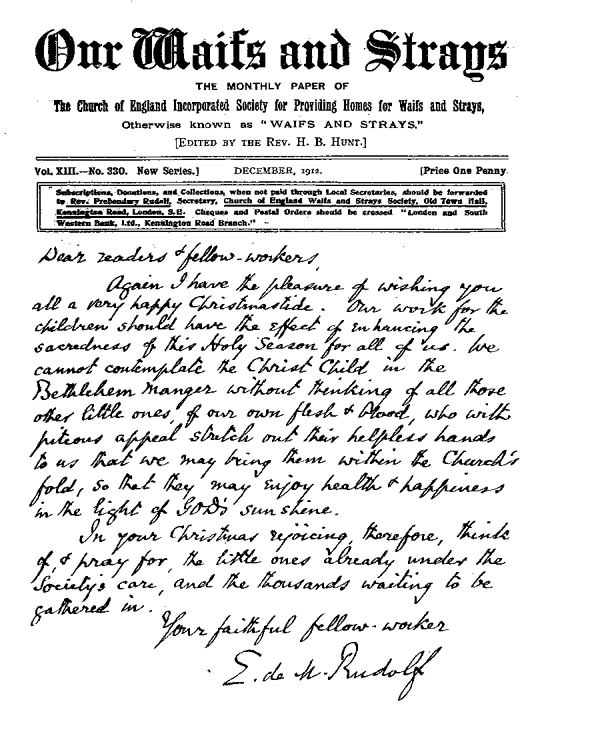 Our Waifs and Strays
THE MONTHLY PAPER OF
The Church of England Incorporated Society for Providing Homes for Waifs and Strays,
Otherwise known as "WAIFS AND STRAYS."
[EDITED BY THE REV. H. B. HUNT.]
VOL. XIII.—No. 330. New Series.] DECEMBER, 1912. [Price One Penny.
Subscriptions, Donations, and Collections, when not paid through Local Secretaries, should be forwarded
to Rev. Prebendary Rudolf, Secretary, Church of England Waifs and Strays Society, Old Town Hall,
Kennington Road, London, S.E. Cheques and Postal Orders should be crossed "London and South
Western Bank, Ltd., Kennington Road Branch."
Dear readers & fellow-workers,
Again I have the pleasure of wishing you
all a very happy Christmastide. Our work for the
children should have the effect of enhancing the
sacredness of this Holy Season for all of us. We
cannot contemplate the Christ Child in the
Bethlehem Manger without thinking of all those
other little ones, of our own flesh & blood, who with
piteous appeal stretch out their helpless hands
to us that we may bring them within the Church's
fold, so that they may enjoy health & happiness
in the light of GOD's sunshine.
In your Christmas rejoicing, therefore, think
of, & pray for, the little ones already under the
Society's care, and the thousands waiting to be
gathered in.
Your faithful fellow-worker
E. de M. Rudolf